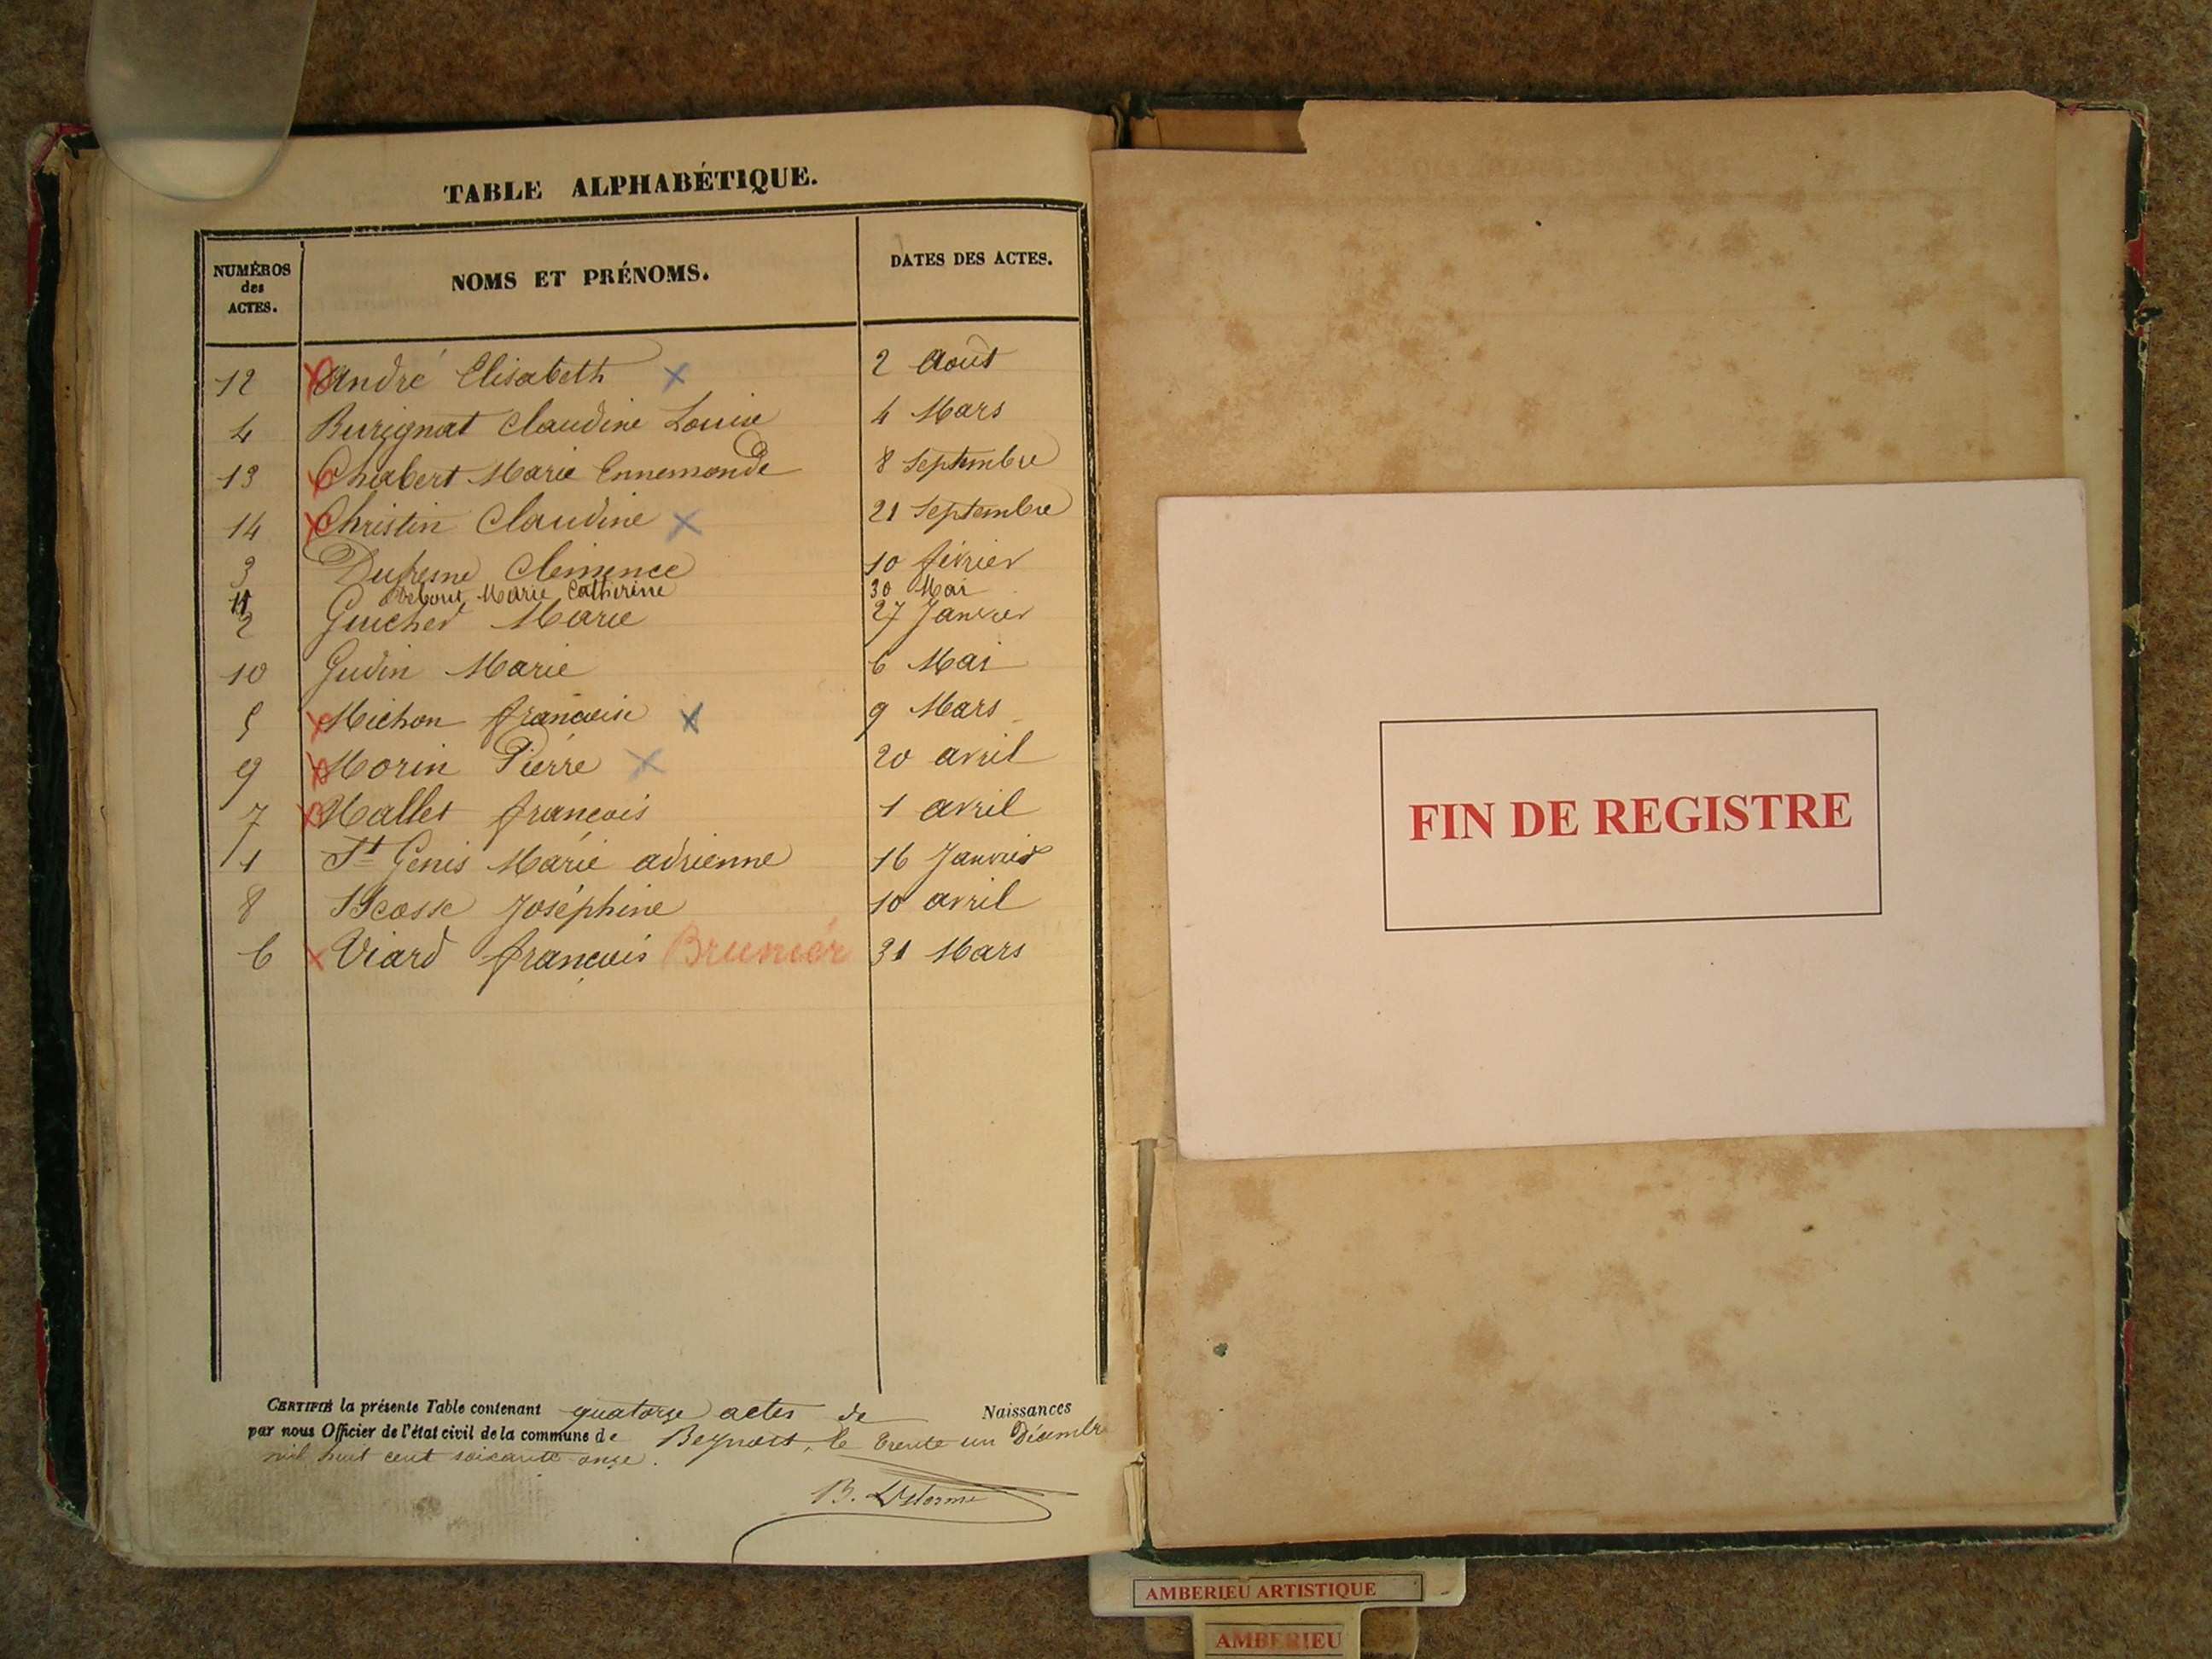 TABLE ALPHABÉTIQUE.
NUMÉROS des ACTES. NOMS ET PRÉNOMS. DATES DES ACTES.
12 André Elisabeth 2 Août
4 Burignat Claudine Louise 4 Mars
13 Chabert Marie Ennemonde 8 Septembre
14 Christin Claudine 21 Septembre
3 Dufresne Clémence 10 février
11 Marie Catherine 30 Mai
2 Guicher Marie 27 Janvier
10 Gudin Marie 6 Mai
5 Michon francoise 9 Mars
9 Morin Pierre 20 avril
7 Mallet francois 1 avril
1 St Genis Marie adrienne 16 Janvier
8 Joséphine 10 avril
6 Viard françois Brunier 31 Mars
CERTIFIÉ la présente Table contenant quatorze actes de Naissances
par nous Officier de l'état civil de la commune de Beynost, le trente un Décembre
mil huit cent soixante onze.
B. Delorme
FIN DE REGISTRE
AMBERIEU ARTISTIQUE
AMBERIEU